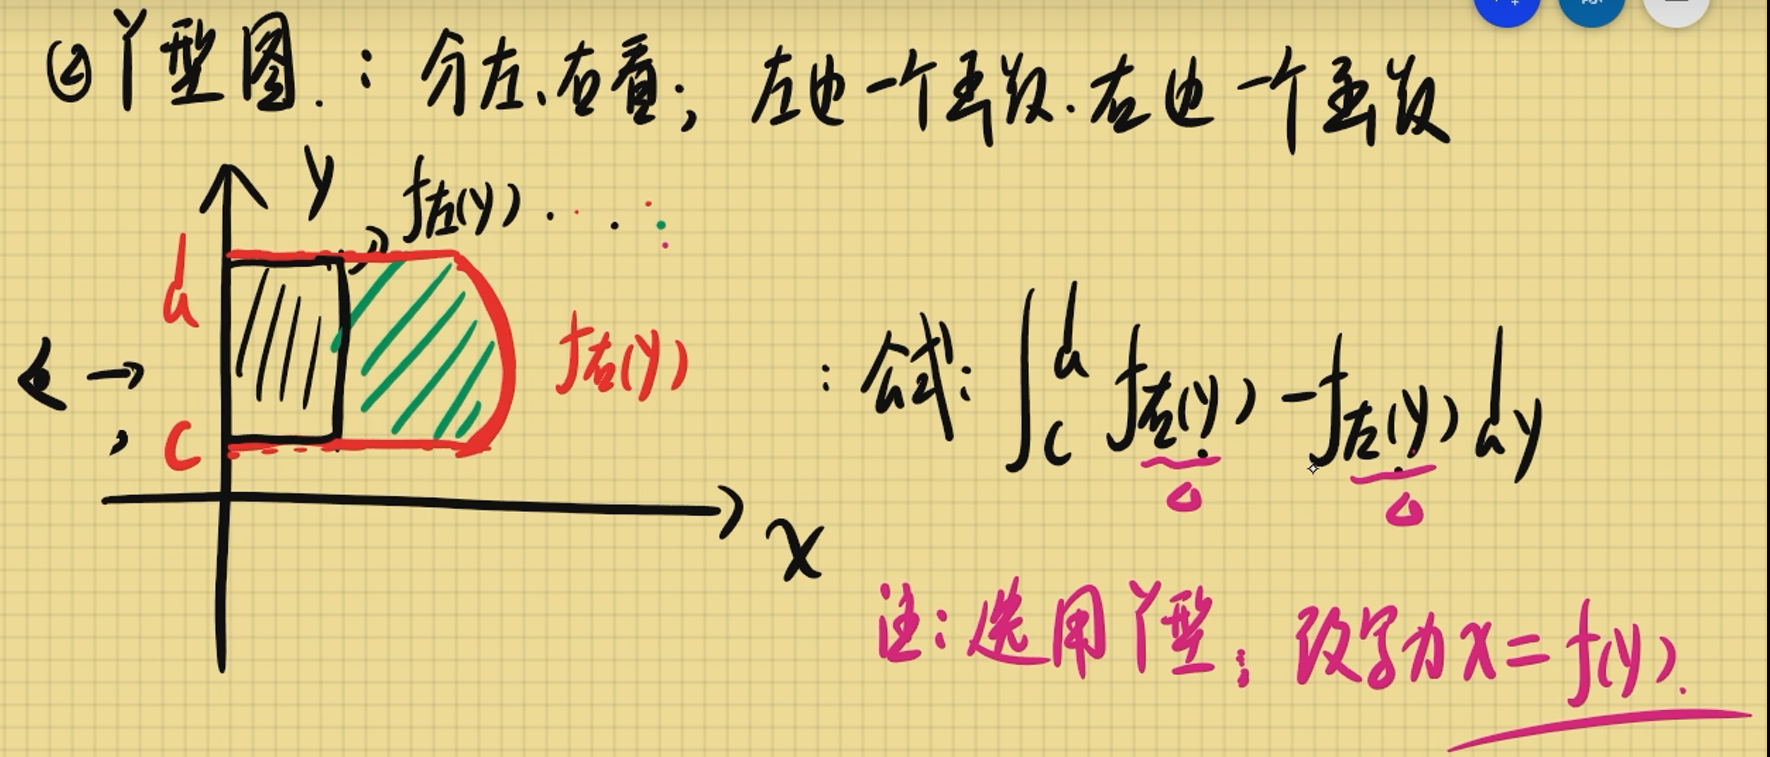 ②Y型图.：分左、右看；左边一个函数.右边一个函数
y
f左(y).
d
f右(y)
：公式：∫_c^d f右(y) - f左(y) dy
c
x
注：选用Y型；改写为x=f(y).